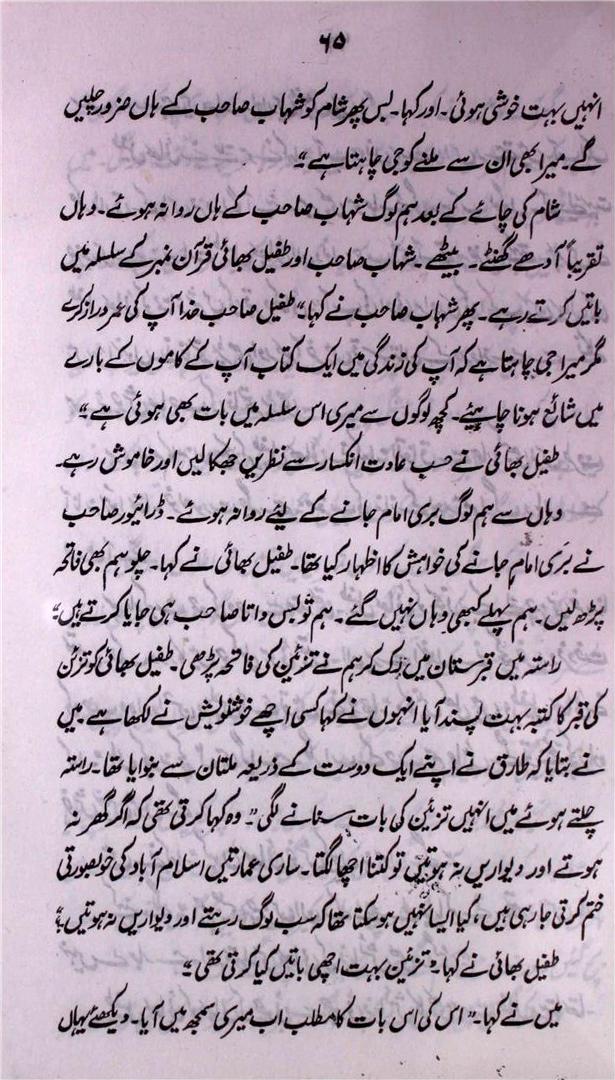 ۶۵
انہیں بہت خوشی ہوئی۔ اور کہا۔ بس پھر شام کو شہاب صاحب کے ہاں ضرور چلیں
گے۔ میرا بھی ان سے ملنے کو جی چاہتا ہے"
شام کی چائے کے بعد ہم لوگ شہاب صاحب کے ہاں روانہ ہوئے۔ وہاں
تقریباً آدھے گھنٹے۔ بیٹھے۔ شہاب صاحب اور طفیل بھائی قرآن نمبر کے سلسلہ میں
باتیں کرتے رہے۔ پھر شہاب صاحب نے کہا۔" طفیل صاحب خدا آپ کی عمر دراز کرے
مگر میرا جی چاہتا ہے کہ آپ کی زندگی میں ایک کتاب آپ کے کاموں کے بارے
میں شائع ہونا چاہیئے۔ کچھ لوگوں سے میری اس سلسلہ میں بات بھی ہوئی ہے"
طفیل بھائی نے حسب عادت انکسار سے نظریں جھکا لیں اور خاموش رہے۔
وہاں سے ہم لوگ بری امام جانے کے لیئے روانہ ہوئے۔ ڈرائیور صاحب
نے بَری امام جانے کی خواہش کا اظہار کیا تھا۔ طفیل بھائی نے کہا۔ چلو ہم بھی فاتحہ
پڑھ لیں۔ ہم پہلے کبھی وہاں نہیں گئے۔ ہم تو بس داتا صاحب ہی جایا کرتے ہیں"
راستہ میں قبرستان میں رک کر ہم نے تزئین کی فاتحہ پڑھی۔ طفیل بھائی کو تزئن
کی قبر کا کتبہ بہت پسند آیا انہوں نے کہا کسی اچھے خوشنویش نے لکھا ہے میں
نے بتایا کہ طارق نے اپنے ایک دوست کے ذریعہ ملتان سے بنوایا تھا۔ راستہ
چلتے ہوئے میں انہیں تزئین کی بات سنانے لگی"۔ وہ کہا کرتی تھی کہ اگر گھر نہ
ہوتے اور دیواریں نہ ہوتیں تو کتنا اچھا لگتا۔ ساری عمارتیں اسلام آباد کی خوبصورتی
ختم کرتی جا رہی ہیں، کیا ایسا نہیں ہو سکتا تھا کہ سب لوگ رہتے اور دیواریں نہ ہوتیں"
طفیل بھائی نے کہا۔" تزئین بہت اچھی باتیں کیا کرتی تھی"
میں نے کہا۔" اس کی اس بات کا مطلب اب میری سمجھ میں آیا۔ دیکھئے یہاں